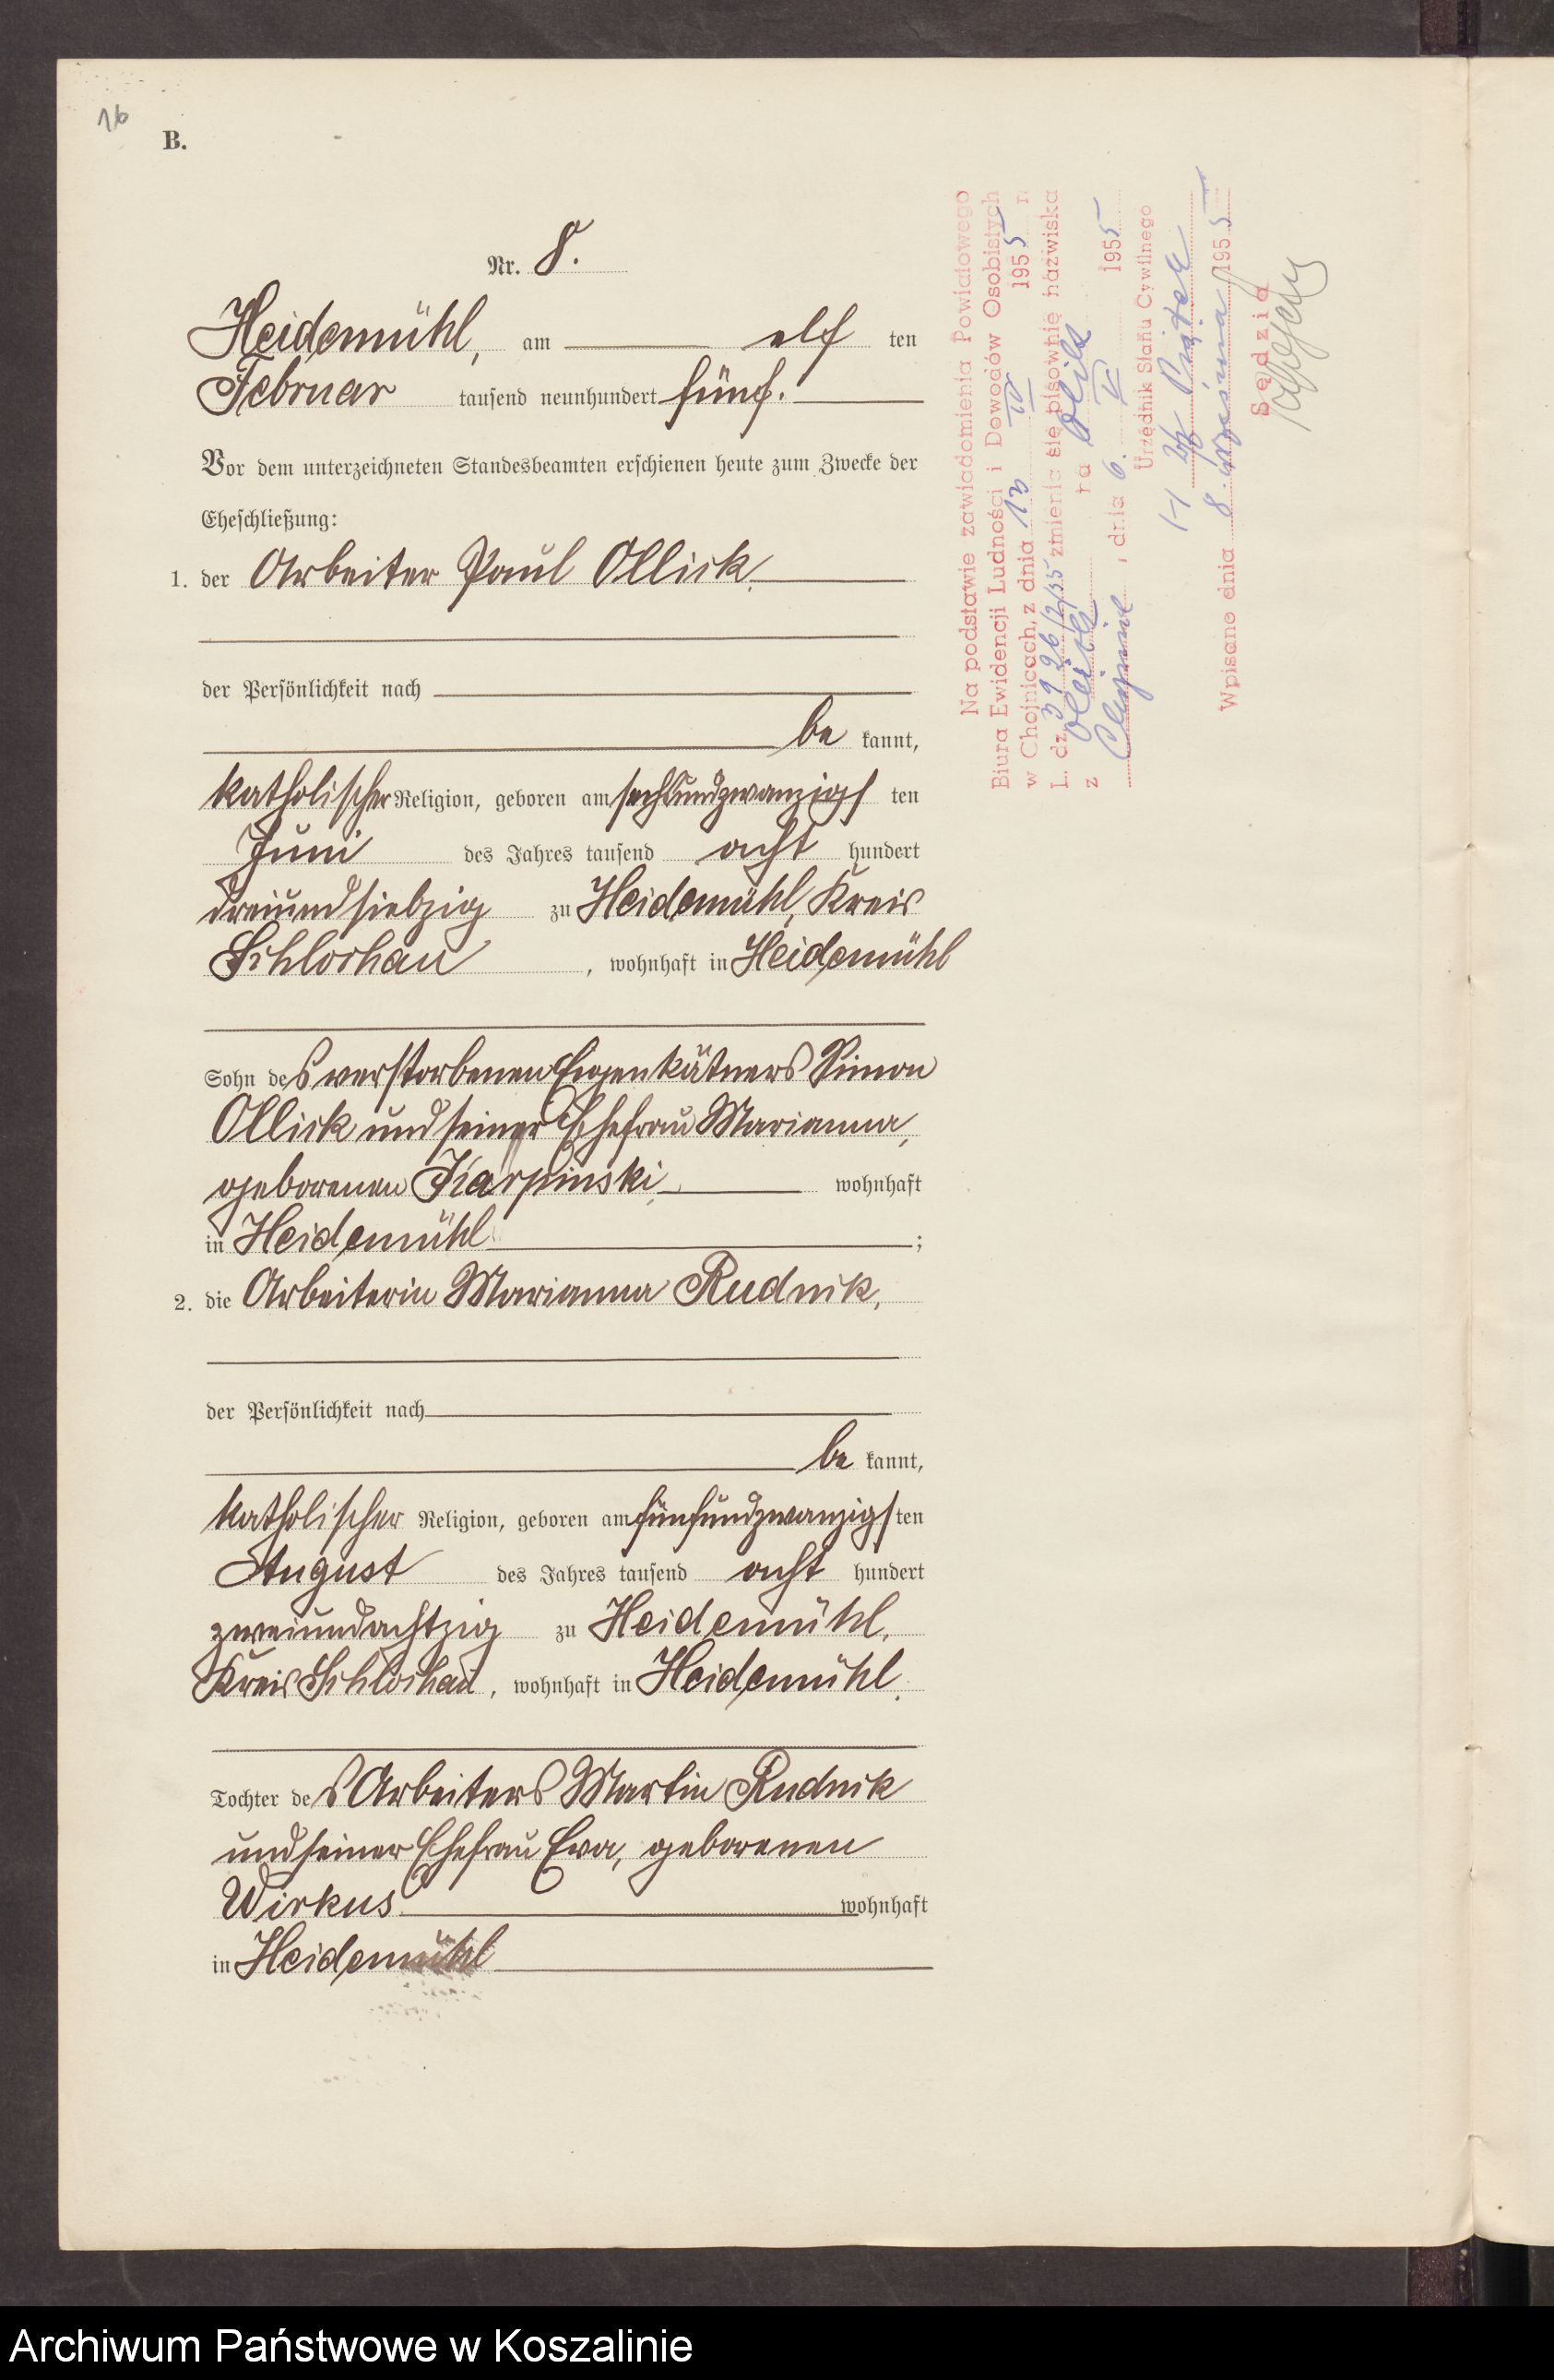 16
B.
Nr. 8.
Heidemühl, am elf ten
Februar tausend neunhundert fünf.
Vor dem unterzeichneten Standesbeamten erschienen heute zum Zwecke der
Eheschließung:
1. der Arbeiter Paul Ollick,
der Persönlichkeit nach
be kannt,
katholischer Religion, geboren am sechsundzwanzigs ten
Juni des Jahres tausend acht hundert
dreiundsiebzig zu Heidemühl, Kreis
Schlochau, wohnhaft in Heidemühl
Sohn des verstorbenen Eigenkätners Simon
Ollick und seiner Ehefrau Marianna,
geborenen Karpinski, wohnhaft
in Heidemühl ;
2. die Arbeiterin Marianna Rudnik,
der Persönlichkeit nach
be kannt,
katholischer Religion, geboren am fünfundzwanzigs ten
August des Jahres tausend acht hundert
zweiundachtzig zu Heidemühl,
Kreis Schlochau, wohnhaft in Heidemühl,
Tochter des Arbeiters Martin Rudnik
und seiner Ehefrau Eva, geborenen
Wirkus wohnhaft
in Heidemühl
Na podstawie zawiadomienia Powiatowego
Biura Ewidencji Ludności i Dowodów Osobistych
w Chojnicach, z dnia 13 IV 1955 r.
L. dz. zmienia się pisownię nazwiska
z na Olik
, dnia 6. V 1955
Urzędnik Stanu Cywilnego
(-) Piątek
Wpisano dnia 8. września 1955
Sędzia
Archiwum Państwowe w Koszalinie